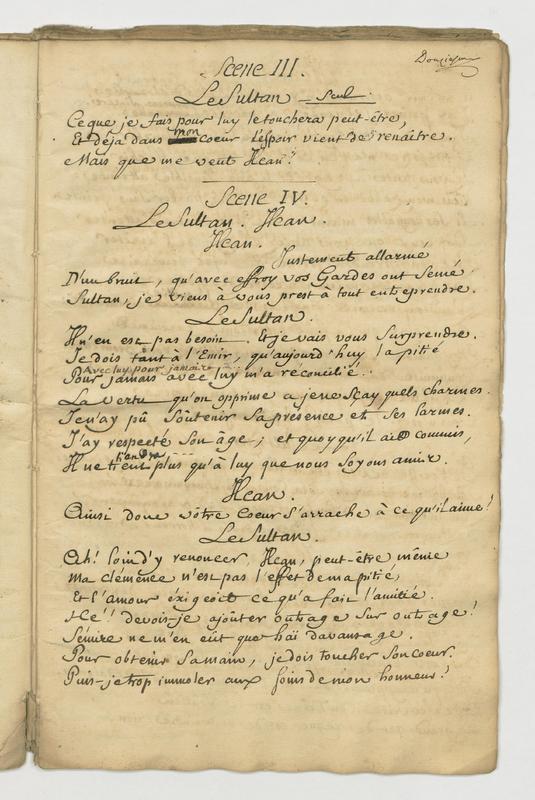 Scene III.
Le Sultan - Seul.
Ce que je fais pour luy le touchera peut-être,
Et déja dans mon coeur l'éspoir vient de renaître.
Mais que me veut Hcan?
Scene IV.
Le Sultan. Hcan.
Hcan.
Justement allarmé
D'un bruit, qu'avec effroy vos Gardes ont semé
Sultan, je viens à vous prest à tout entreprendre.
Le Sultan.
Il n'en est pas besoin. Et je vais vous surprendre.
Je dois tant à l'Emir, qu'aujourd'huy la pitié
Avec luy pour jamais
Pour jamais avec luy m'a reconcilié.
La vertu qu'on opprime a je ne sçay quels charmes.
Je n'ay pû soûtenir sa presence et ses larmes.
J'ay respecté son âge; et quoy qu'il ait commis,
Il ne tiendra plus qu'à luy que nous soyons amis.
Hcan.
Ainsi donc vôtre coeur s'arrache à ce qu'il aime!
Le Sultan.
Ah! loin d'y renoncer, Hcan, peut-être même
Ma clémence n'est pas l'effet de ma pitié,
Et l'amour éxigeoit ce qu'a fait l'amitié.
Hé! devois-je ajoûter outrage sur outrage!
Sémire ne m'en eût que haï davantage.
Pour obtenir sa main, je dois toucher son coeur.
Puis-je trop immoler aux soins de mon honneur!